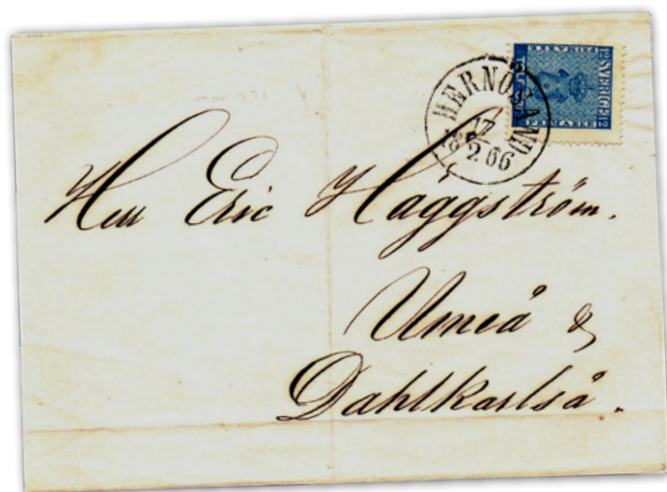 HERNÖSAND
17
2 66
SVERIGE
FRIMÄRKE
Herr Eric Häggström.
Umeå &
Dahlkarlså.